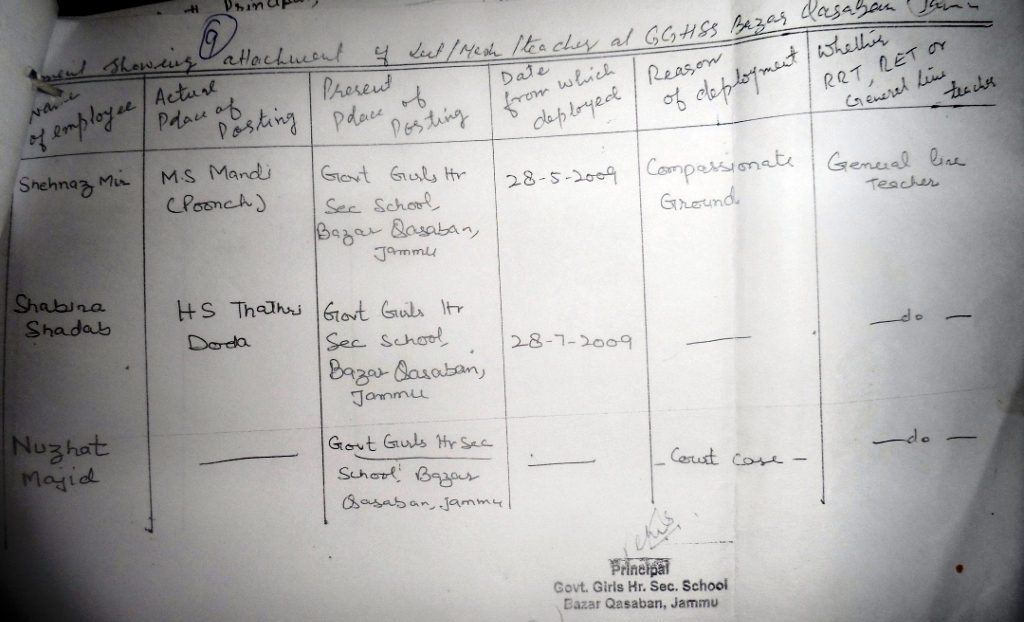 Principal,
9
Showing attachment of Lect/Master/teacher at GGHSS Bazar Qasaban Jammu
Name of employee
Actual Place of Posting
Present Place of Posting
Date from which deployed
Reason of deployment
Whether RRT, RET or General line teacher
Shehnaz Mir
M.S Mandi (Poonch)
Govt Girls Hr Sec School, Bazar Qasaban, Jammu
28-5-2009
Compassionate Ground
General line Teacher
Shabina Shadab
H S Thathri Doda
Govt Girls Hr Sec School, Bazar Qasaban, Jammu
28-7-2009
—
—do—
Nuzhat Majid
—
Govt Girls Hr Sec School, Bazar Qasaban, Jammu
—
- Court case -
—do—
Principal
Govt. Girls Hr. Sec. School
Bazar Qasaban, Jammu